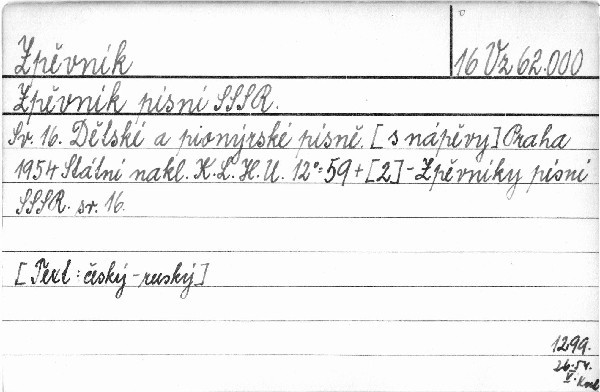 Zpěvník 16 Vz 62.000
Zpěvník písní SSSR.
Sv. 16. Dětské a pionýrské písně. [s nápěvy] Praha
1954 Státní nakl. K.L.H.U. 12°=59+[2] - Zpěvníky písní
SSSR. sv. 16.
[Text: český - ruský]
1299.
26-54.
V.